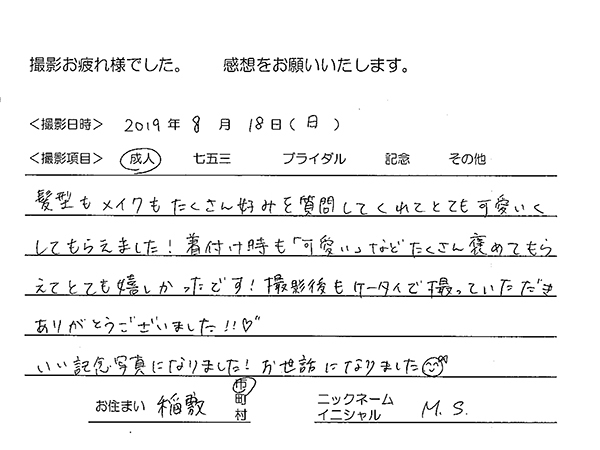 撮影お疲れ様でした。　　感想をお願いいたします。
<撮影日時>　2019年 8 月 18日(日)
<撮影項目>　成人　七五三　ブライダル　記念　その他
髪型もメイクもたくさん好みを質問してくれてとても可愛いく
してもらえました！着付け時も「可愛い」などたくさん褒めてもら
えてとても嬉しかったです！撮影後もケータイで撮っていただき
ありがとうございました!!♡
いい記念写真になりました！お世話になりました
お住まい　稲敷　市町村　ニックネーム イニシャル　M.S.